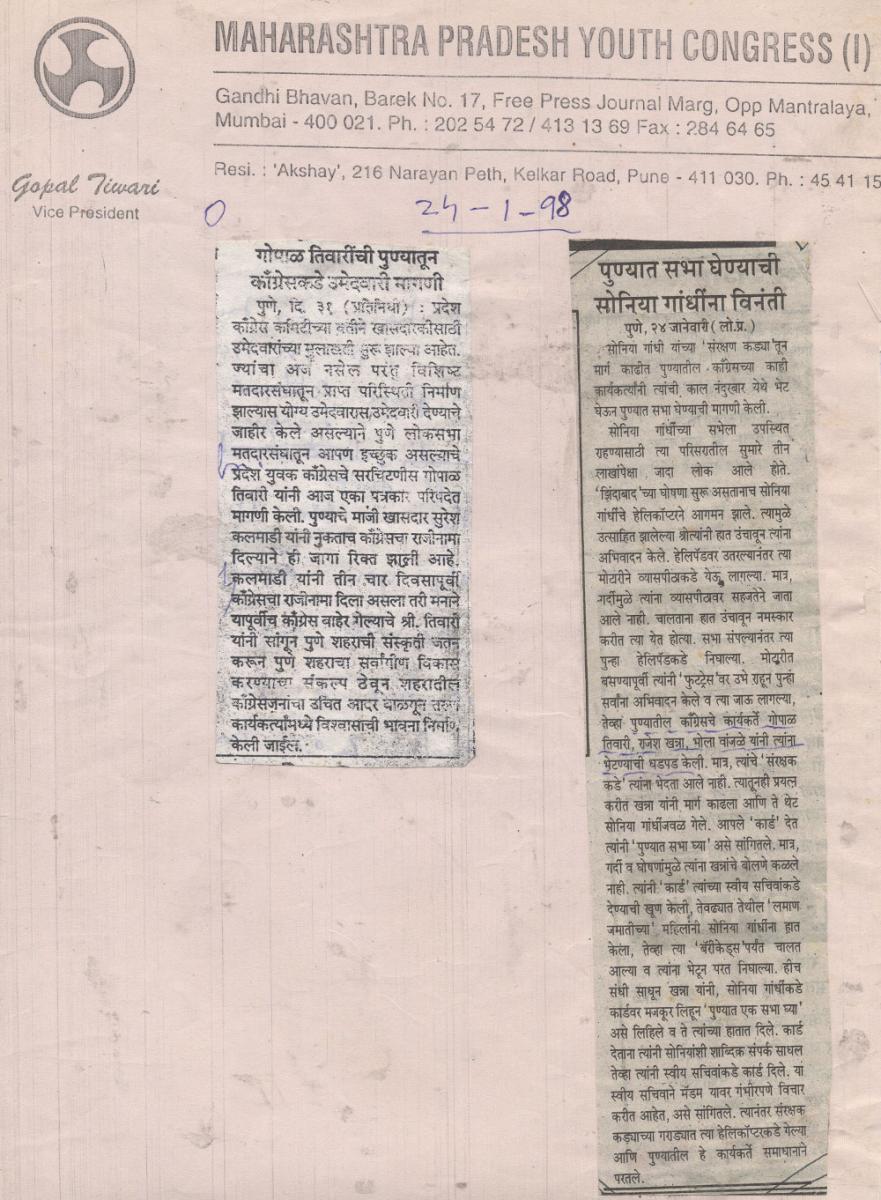 MAHARASHTRA PRADESH YOUTH CONGRESS (I)
Gandhi Bhavan, Barek No. 17, Free Press Journal Marg, Opp Mantralaya,
Mumbai - 400 021. Ph. : 202 54 72 / 413 13 69 Fax : 284 64 65
Resi. : 'Akshay', 216 Narayan Peth, Kelkar Road, Pune - 411 030. Ph. : 45 41 15
Gopal Tiwari
Vice President
24-1-98
गोपाळ तिवारींची पुण्यातून
काँग्रेसकडे उमेदवारी मागणी
पुणे, दि. ३१ (प्रतिनिधी) : प्रदेश
काँग्रेस कमिटीच्या वतीने खासदारकीसाठी
उमेदवारांच्या मुलाखती सुरू झाल्या आहेत.
ज्यांचा अर्ज नसेल परंतु विशिष्ट
मतदारसंघातून प्राप्त परिस्थिती निर्माण
झाल्यास योग्य उमेदवारास उमेदवारी देण्याचे
जाहीर केले असल्याने पुणे लोकसभा
मतदारसंघातून आपण इच्छुक असल्याचे
प्रदेश युवक काँग्रेसचे सरचिटणीस गोपाळ
तिवारी यांनी आज एका पत्रकार परिषदेत
मागणी केली. पुण्याचे माजी खासदार सुरेश
कलमाडी यांनी नुकताच काँग्रेसचा राजीनामा
दिल्याने ही जागा रिक्त झाली आहे.
कलमाडी यांनी तीन चार दिवसापूर्वी
काँग्रेसचा राजीनामा दिला असला तरी मनाने
यापूर्वीच काँग्रेस बाहेर गेल्याचे श्री. तिवारी
यांनी सांगून पुणे शहराची संस्कृती जतन
करून पुणे शहराचा सर्वांगीण विकास
करण्याचा संकल्प ठेवून शहरातील
काँग्रेसजनांचा उचित आदर बाळगून तरुण
कार्यकर्त्यांमध्ये विश्वासाची भावना निर्माण
केली जाईल.
पुण्यात सभा घेण्याची
सोनिया गांधींना विनंती
पुणे, २४ जानेवारी (लो.प्र.)
सोनिया गांधी यांच्या 'संरक्षण कड्या'तून
मार्ग काढीत पुण्यातील काँग्रेसच्या काही
कार्यकर्त्यांनी त्यांची काल नंदुरबार येथे भेट
घेऊन पुण्यात सभा घेण्याची मागणी केली.
सोनिया गांधींच्या सभेला उपस्थित
राहण्यासाठी त्या परिसरातील सुमारे तीन
लाखांपेक्षा जादा लोक आले होते.
'झिंदाबाद'च्या घोषणा सुरू असतानाच सोनिया
गांधींचे हेलिकॉप्टरने आगमन झाले. त्यामुळे
उत्साहित झालेल्या श्रोत्यांनी हात उंचावून त्यांना
अभिवादन केले. हेलिपॅडवर उतरल्यानंतर त्या
मोटारीने व्यासपीठाकडे येऊ लागल्या. मात्र,
गर्दीमुळे त्यांना व्यासपीठावर सहजतेने जाता
आले नाही. चालताना हात उंचावून नमस्कार
करीत त्या येत होत्या. सभा संपल्यानंतर त्या
पुन्हा हेलिपॅडकडे निघाल्या. मोटारीत
बसण्यापूर्वी त्यांनी 'फुटट्रेस'वर उभे राहून पुन्हा
सर्वांना अभिवादन केले व त्या जाऊ लागल्या,
तेव्हा पुण्यातील काँग्रेसचे कार्यकर्ते गोपाळ
तिवारी, राजेश खन्ना, भोला वांजळे यांनी त्यांना
भेटण्याची धडपड केली. मात्र, त्यांचे 'संरक्षक
कडे' त्यांना भेदता आले नाही. त्यातूनही प्रयत्न
करीत खन्ना यांनी मार्ग काढला आणि ते थेट
सोनिया गांधींजवळ गेले. आपले 'कार्ड' देत
त्यांनी 'पुण्यात सभा घ्या' असे सांगितले. मात्र,
गर्दी व घोषणांमुळे त्यांना खन्नांचे बोलणे कळले
नाही. त्यांनी 'कार्ड' त्यांच्या स्वीय सचिवांकडे
देण्याची खूण केली, तेवढ्यात तेथील 'लमाण
जमातीच्या' महिलांनी सोनिया गांधींना हात
केला, तेव्हा त्या 'बॅरीकेड्स'पर्यंत चालत
आल्या व त्यांना भेटून परत निघाल्या. हीच
संधी साधून खन्ना यांनी, सोनिया गांधींकडे
कार्डवर मजकूर लिहून 'पुण्यात एक सभा घ्या'
असे लिहिले व ते त्यांच्या हातात दिले. कार्ड
देताना त्यांनी सोनियांशी शाब्दिक संपर्क साधला
तेव्हा त्यांनी स्वीय सचिवांकडे कार्ड दिले. या
स्वीय सचिवाने मॅडम यावर गंभीरपणे विचार
करीत आहेत, असे सांगितले. त्यानंतर संरक्षक
कड्याच्या गराड्यात त्या हेलिकॉप्टरकडे गेल्या
आणि पुण्यातील हे कार्यकर्ते समाधानाने
परतले.